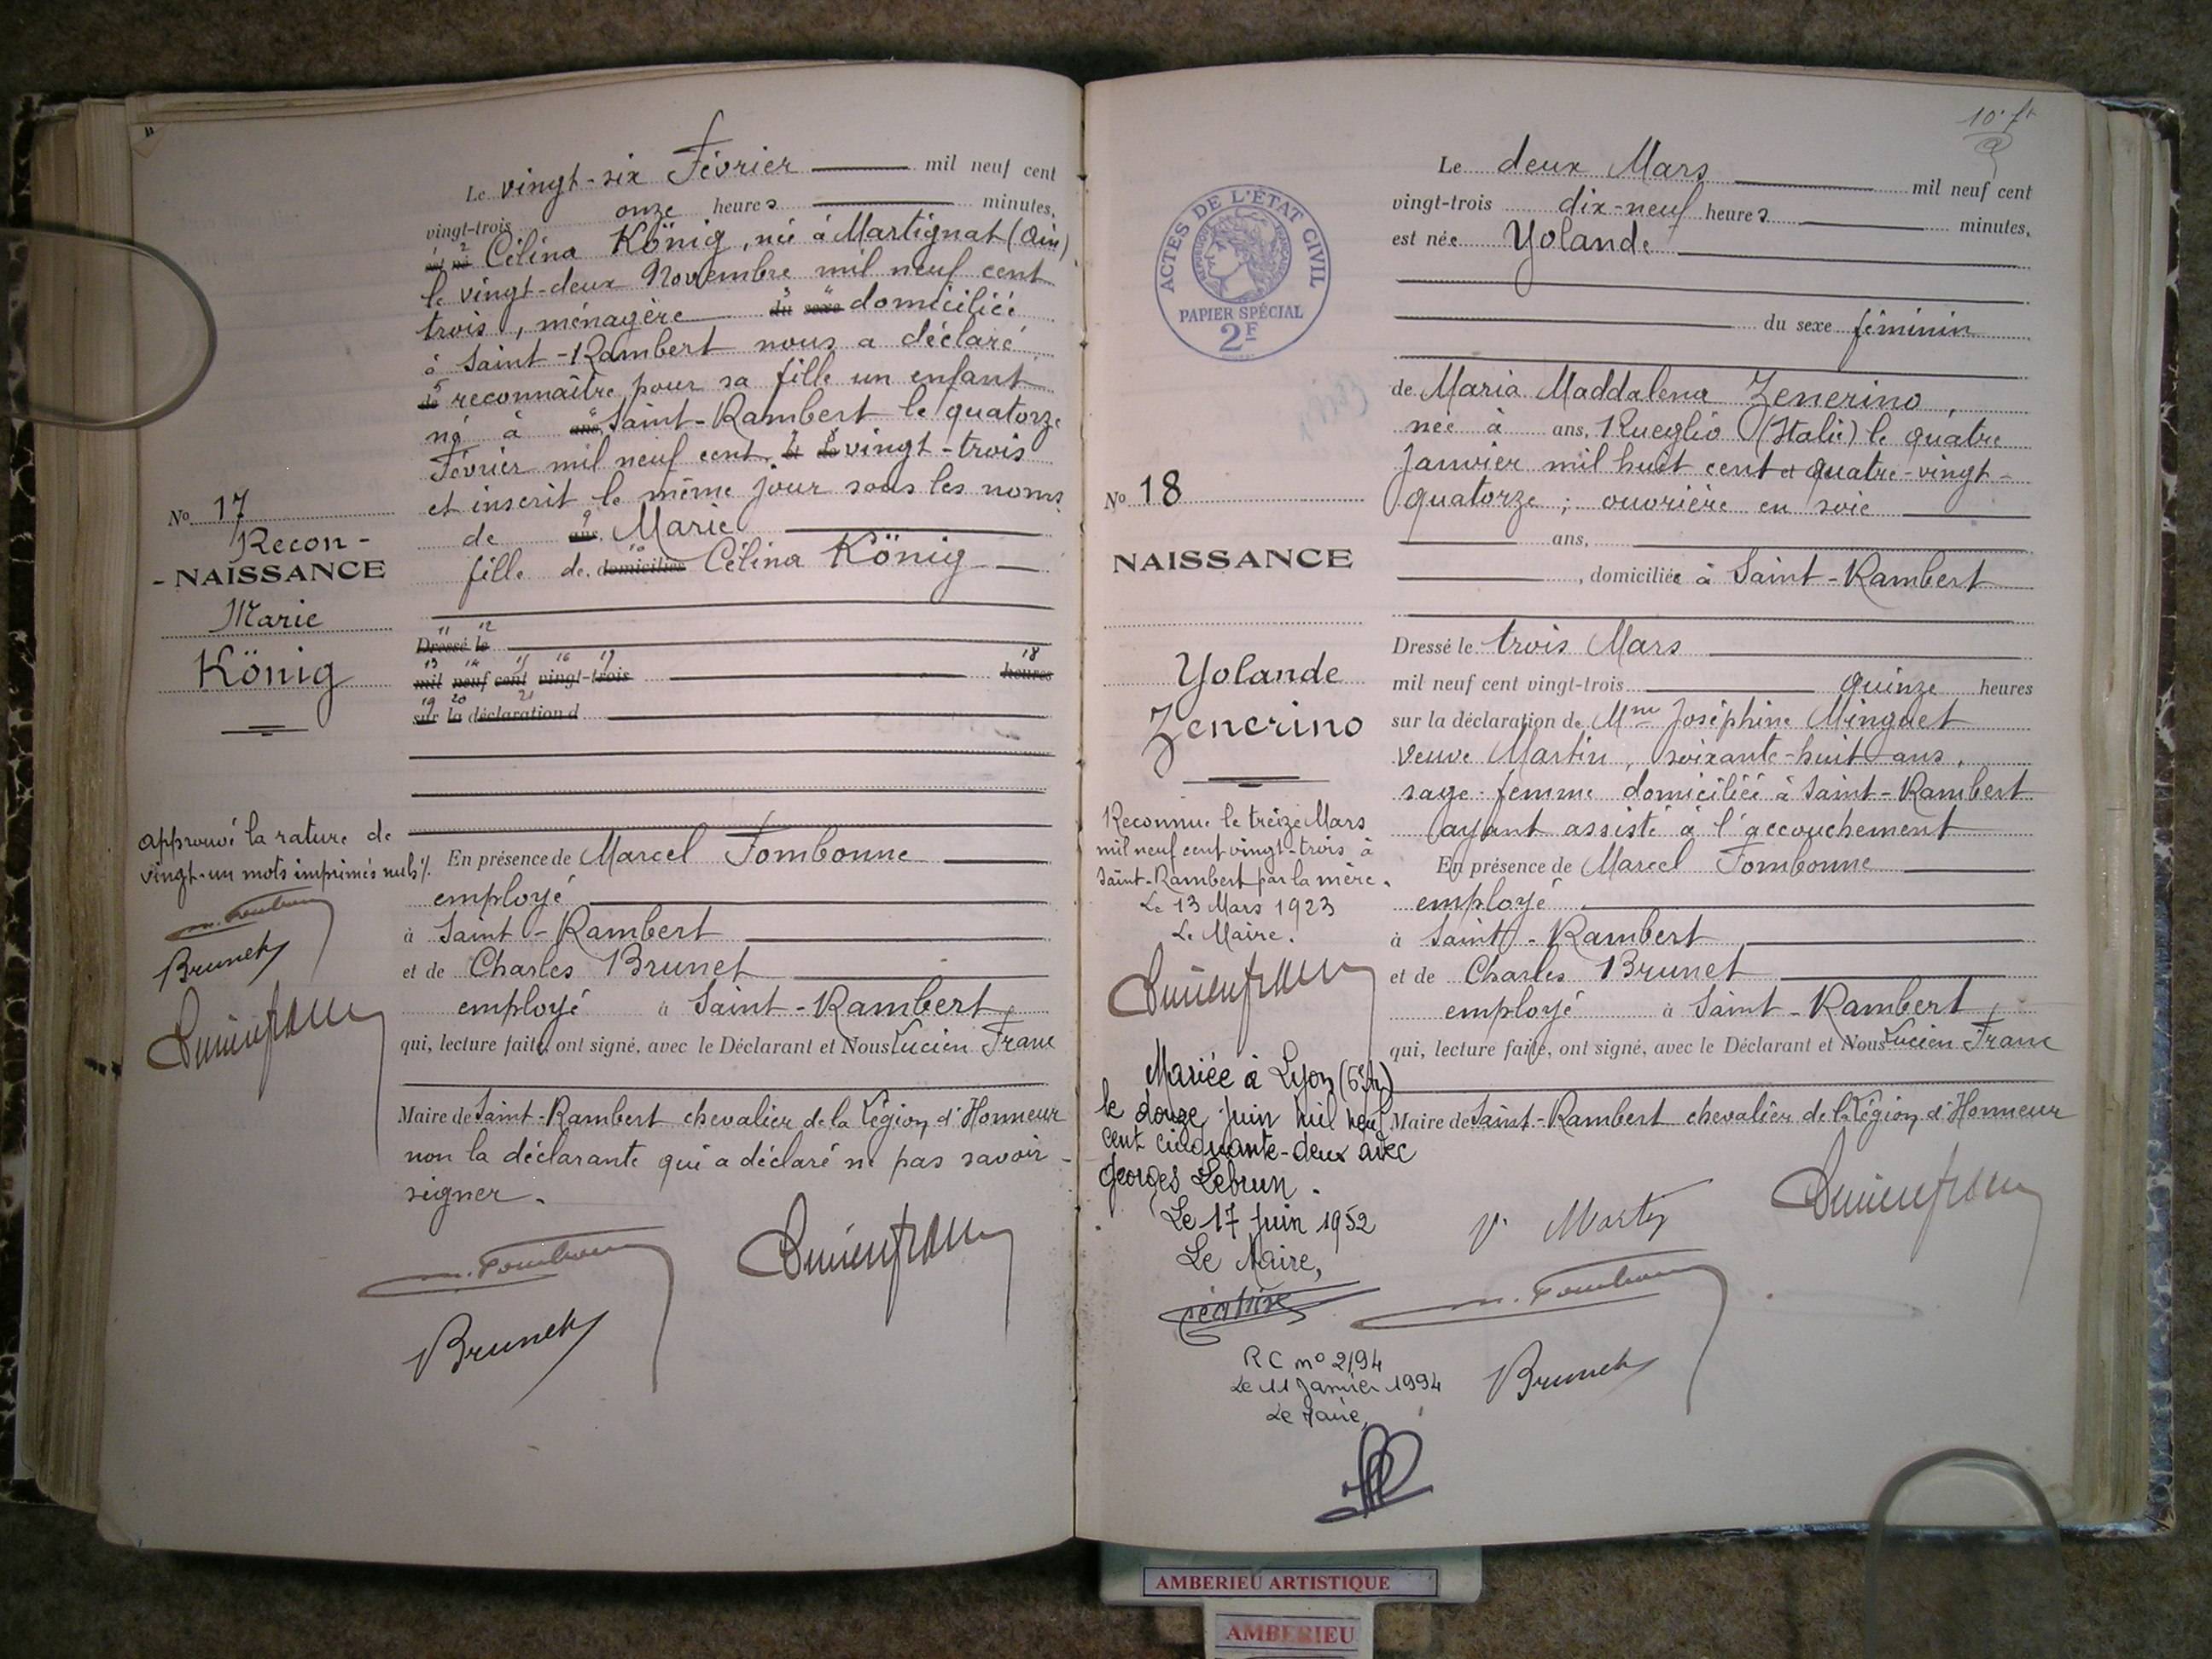 Le vingt-six Février mil neuf cent
vingt-trois onze heures minutes,
est né Célina König, née à Martignat (Ain)
le vingt-deux Novembre mil neuf cent
trois, ménagère du sexe domiciliée
à Saint-Rambert nous a déclaré
de reconnaître pour sa fille un enfant
né à ans, Saint-Rambert le quatorze
Février mil neuf cent et de vingt-trois
et inscrit le même jour sous les noms
de ans, Marie
fille de domiciliés Célina König
No 17
Recon-
-NAISSANCE
Marie
König
Dressé le
mil neuf cent vingt-trois heures
sur la déclaration d
approuvé la rature de
vingt-un mots imprimés nuls
m. Fombonne
Brunet
Lucien franc
En présence de Marcel Fombonne
employé
à Saint-Rambert
et de Charles Brunet
employé à Saint-Rambert
qui, lecture faite, ont signé, avec le Déclarant et Nous Lucien Franc
Maire de Saint-Rambert chevalier de la Légion d'Honneur
non la déclarante qui a déclaré ne pas savoir
signer.
m. Fombonne
Lucien franc
Brunet
ACTES DE L'ÉTAT CIVIL
RÉPUBLIQUE FRANÇAISE
PAPIER SPÉCIAL
2F
Le deux Mars mil neuf cent
vingt-trois dix-neuf heures minutes,
est née Yolande
du sexe féminin
de Maria Maddalena Zenerino,
née à ans, Rueglio (Italie) le quatre
Janvier mil huit cent et quatre-vingt-
quatorze ; ouvrière en soie
ans,
, domiciliée à Saint-Rambert
No 18
NAISSANCE
Yolande
Zenerino
Dressé le trois Mars
mil neuf cent vingt-trois quinze heures
sur la déclaration de Mme Joséphine Minguet
veuve Martin, soixante-huit ans,
sage-femme domiciliée à Saint-Rambert
ayant assisté à l'accouchement
En présence de Marcel Fombonne
employé
à Saint-Rambert
et de Charles Brunet
employé à Saint-Rambert
qui, lecture faite, ont signé, avec le Déclarant et Nous Lucien Franc
Maire de Saint-Rambert chevalier de la Légion d'Honneur
Reconnue le treize Mars
mil neuf cent vingt-trois à
Saint-Rambert par la mère.
Le 13 Mars 1923
Le Maire.
Lucien franc
Mariée à Lyon (6e Ar)
le douze juin mil neuf
cent cinquante-deux avec
Georges Lebrun.
Le 17 juin 1952
Le Maire,
R C no 2/94
Le 11 Janvier 1994
Le Maire,
V. Martin
Lucien franc
m. Fombonne
Brunet
AMBERIEU ARTISTIQUE
AMBERIEU